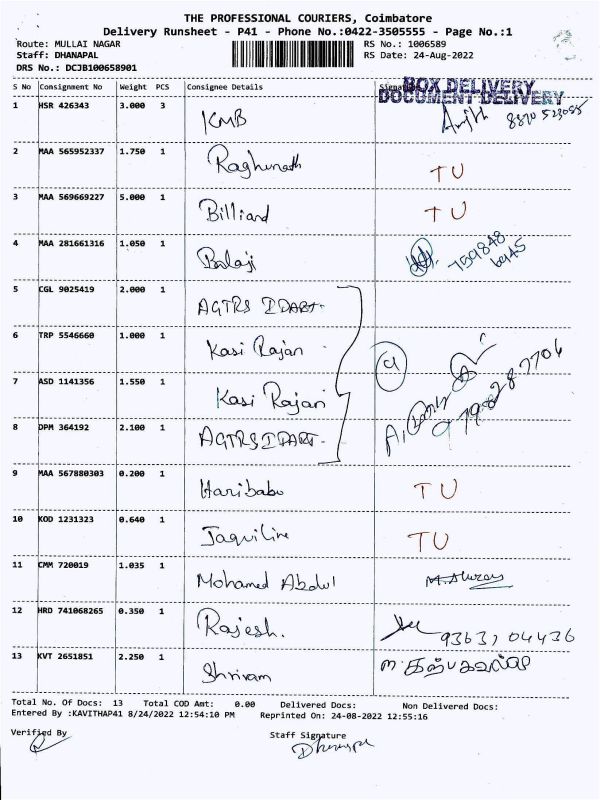 THE PROFESSIONAL COURIERS, Coimbatore
Delivery Runsheet - P41 - Phone No.:0422-3505555 - Page No.:1
Route: MULLAI NAGAR RS No.: 1006589
Staff: DHANAPAL RS Date: 24-Aug-2022
DRS No.: DCJB100658901
BOX DELIVERY
S No Consignment No Weight PCS Consignee Details
DOCUMENT DELIVERY
1 HSR 426343 3.000 3 KMB 8870 523055
2 MAA 565952337 1.750 1 Raghunath TU
3 MAA 569669227 5.000 1 Billiard TU
4 MAA 281661316 1.050 1 Balaji 759848
6945
5 CGL 9025419 2.000 1 AGTRS IDART
6 TRP 5546660 1.000 1 Kasi Rajan
7 ASD 1141356 1.550 1 Kasi Rajan
8 DPM 364192 2.100 1 AGTRS IDART
9 MAA 567880303 0.200 1 Haribabu TU
10 KOD 1231323 0.640 1 Jaquiline TU
11 CMM 720019 1.035 1 Mohamed Abdul
12 HRD 741068265 0.350 1 Rajesh. 9363704436
13 KVT 2651851 2.250 1 Shriram
Total No. Of Docs: 13 Total COD Amt: 0.00 Delivered Docs: Non Delivered Docs:
Entered By :KAVITHAP41 8/24/2022 12:54:10 PM Reprinted On: 24-08-2022 12:55:16
Verified By Staff Signature